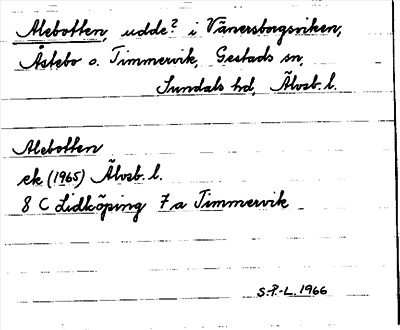 Alebotten, udde? i Vänersborgsviken,
Åstebo o. Timmervik, Gestads sn,
Sundals hd, Älvsb. l.
Alebotten
ek (1965) Älvsb. l.
8 C Lidköping 7 a Timmervik
S.P.-L. 1966